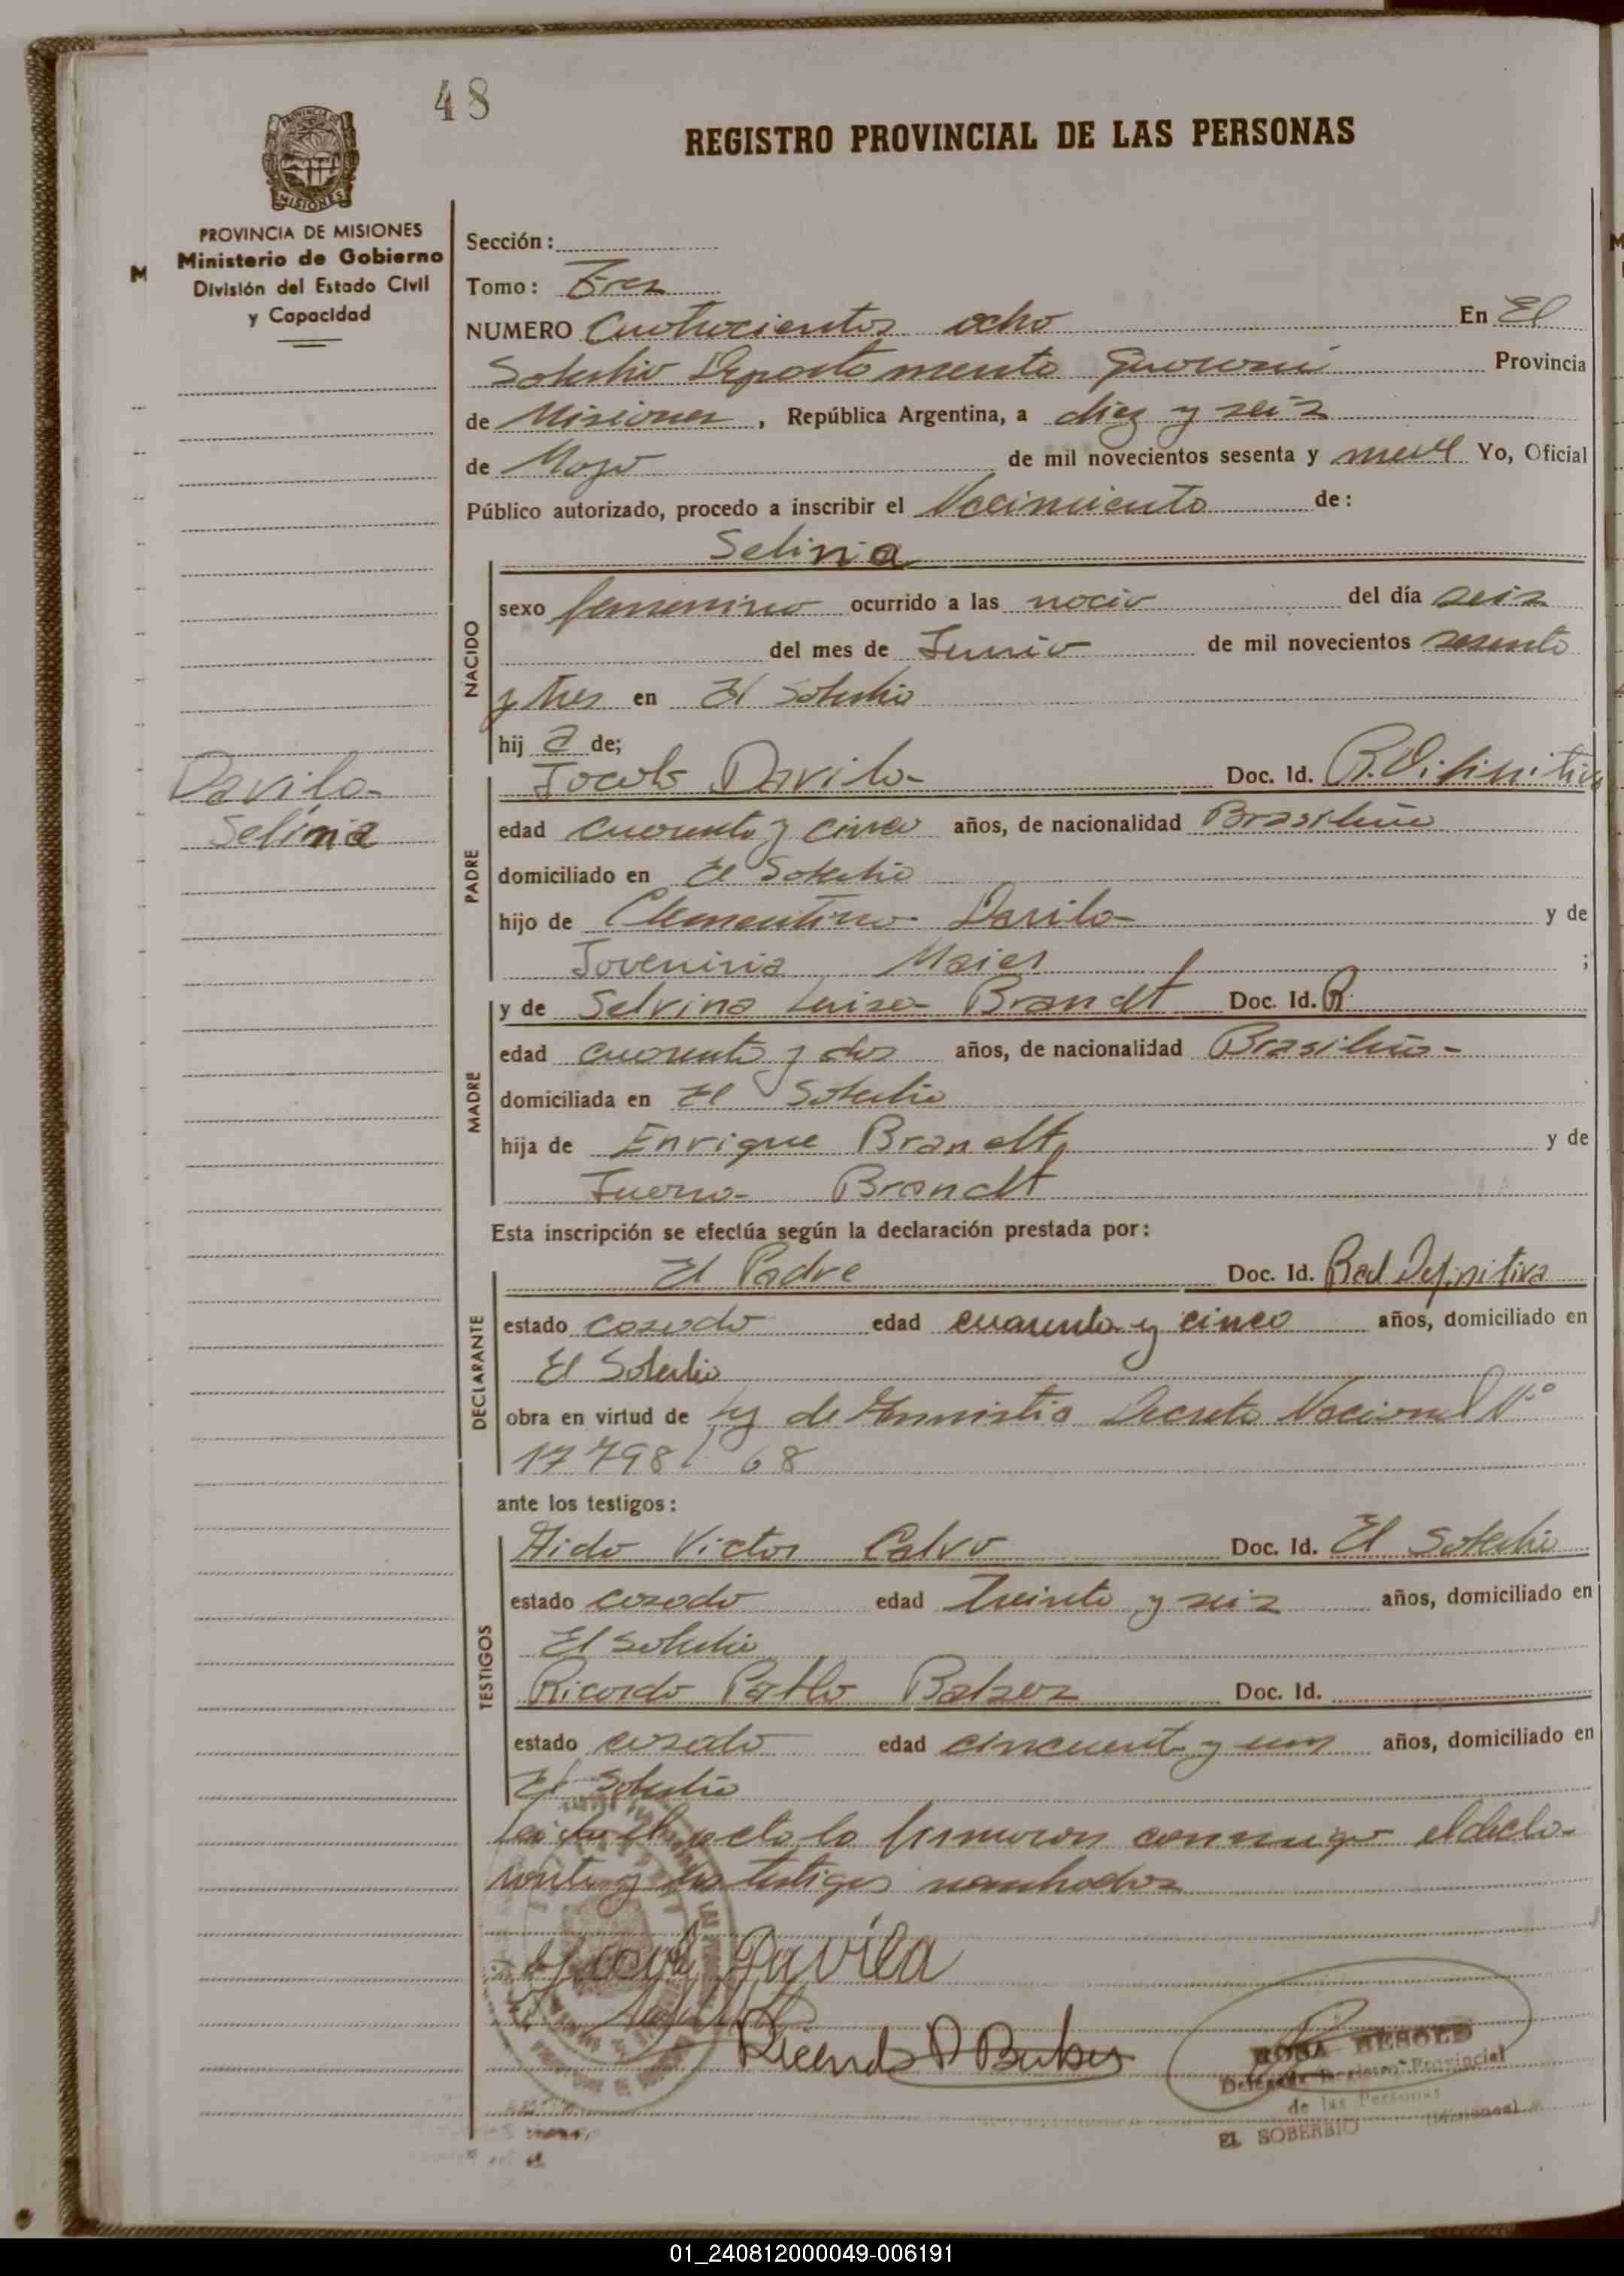 48
REGISTRO PROVINCIAL DE LAS PERSONAS
MISIONES
PROVINCIA DE MISIONES
Ministerio de Gobierno
División del Estado Civil
y Capacidad
Sección:
Tomo: Tres
NUMERO Cuatrocientos ocho En El
Soberbio Departamento Guaraní Provincia
de Misiones, República Argentina, a diez y seis
de Mayo de mil novecientos sesenta y nueve Yo, Oficial
Público autorizado, procedo a inscribir el Nacimiento de:
Selina
NACIDO
sexo femenino ocurrido a las del día seis
del mes de Junio de mil novecientos sesenta
y tres en El Soberbio
hij a de;
Davila
Selina
PADRE
Jacob Davila Doc. Id. R. Difinitiva
edad cuarenta y cinco años, de nacionalidad Brasileño
domiciliado en El Soberbio
hijo de Clementino Davila y de
Joveninia Maier;
MADRE
y de Selvina Luisa Brandt Doc. Id. R.
edad cuarenta y dos años, de nacionalidad Brasileña
domiciliada en El Soberbio
hija de Enrique Brandt y de
Brandt
Esta inscripción se efectúa según la declaración prestada por:
DECLARANTE
El Padre Doc. Id. Rad Definitiva
estado casado edad cuarenta y cinco años, domiciliado en
El Soberbio
obra en virtud de Ley de Amnistia Decreto Nacional Nº
17798/68
ante los testigos:
TESTIGOS
Aido Victor Calvo Doc. Id. El Soberbio
estado casado edad treinta y seis años, domiciliado en
El Soberbio
Ricardo Pablo Doc. Id.
estado casado edad cincuenta y un años, domiciliado en
El Soberbio
Leida el acta la firmaron conmigo el decla-
rante y los testigos nombrados
Jacob Davila
Ricardo P
ROSA HESOLD
Delegada Registro Provincial
de las Personas
EL SOBERBIO (Misiones)
01_240812000049-006191